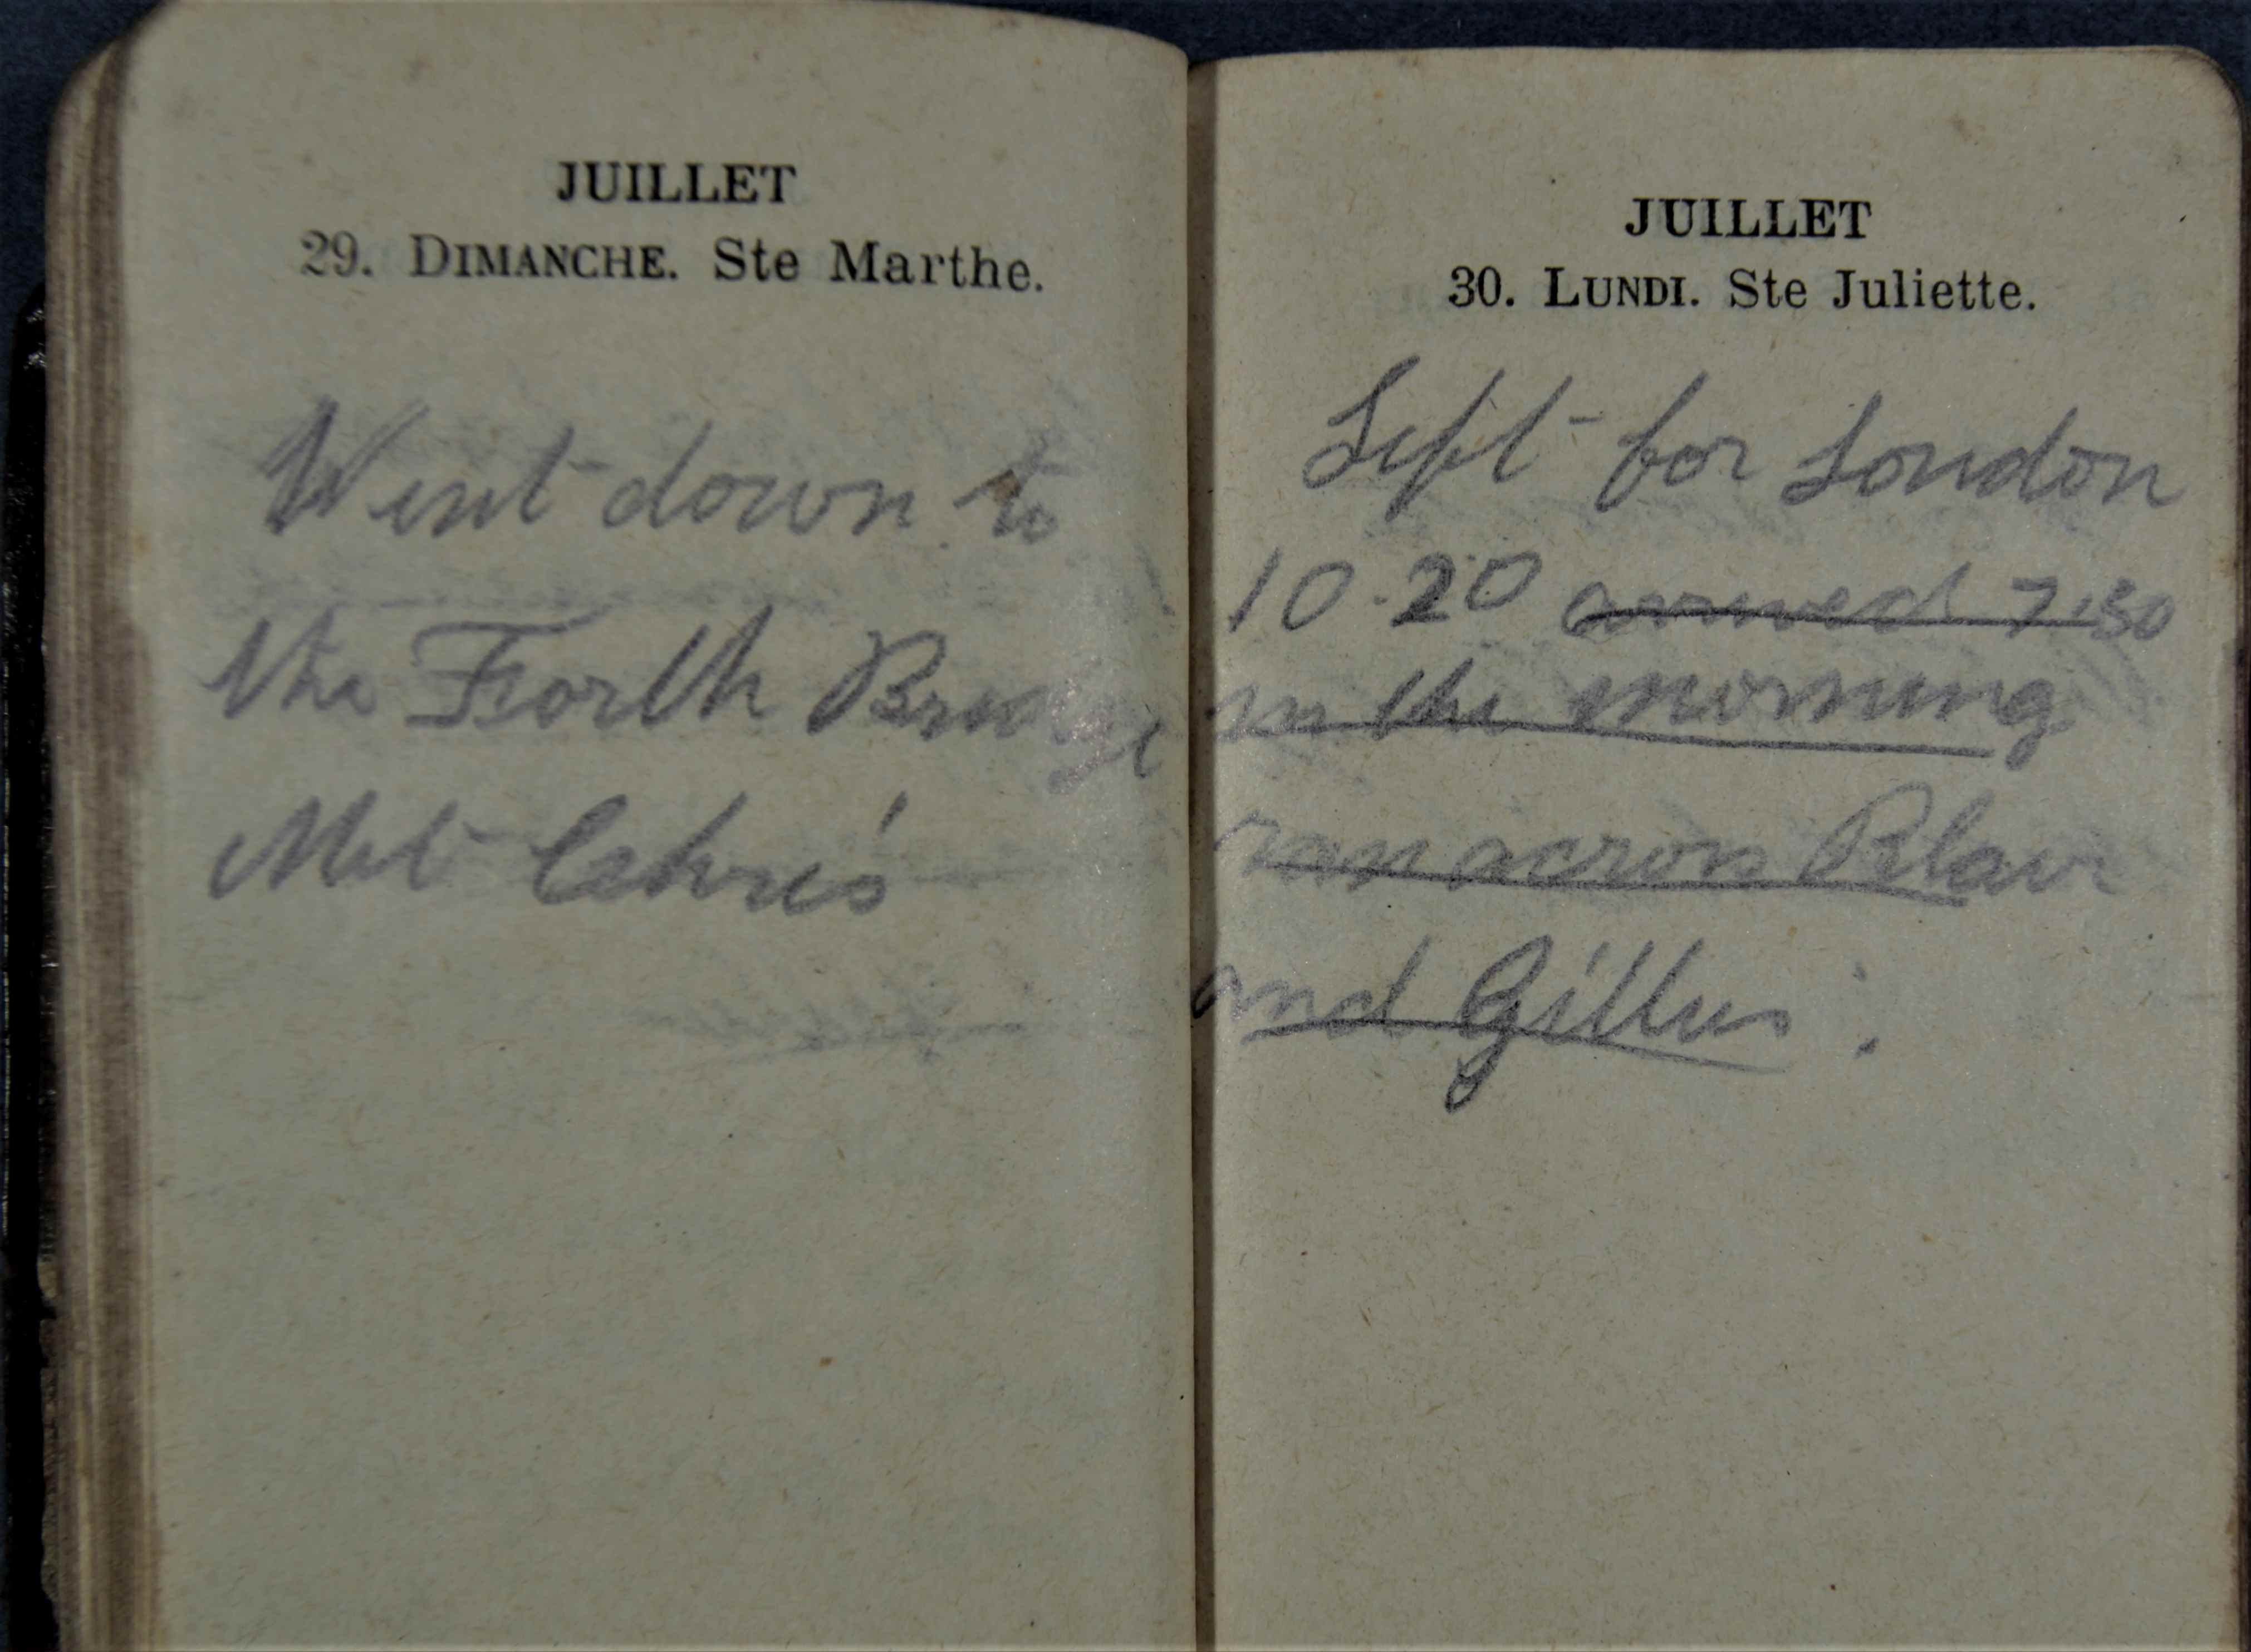 JUILLET
29. DIMANCHE. Ste Marthe.
Went down to
the Forth Bridge
Met Chris
JUILLET
30. LUNDI. Ste Juliette.
Left for London
10.20 arrived 7.30
in the morning
ran across Blair
and Gillies.